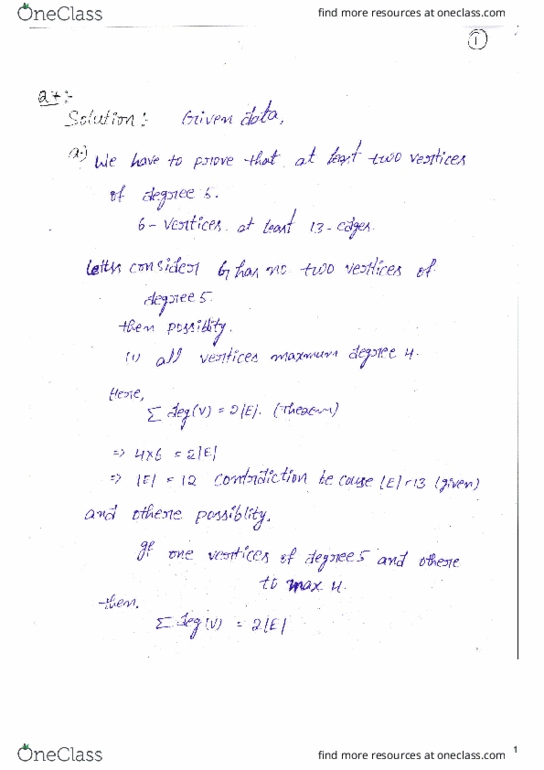 OneClass
find more resources at oneclass.com
1
27:-
Solution:- Given data,
a.) We have to prove that at least two vertices
of degree 5.
6 - vertices at least 13 - edges.
consider G has no two vertices of
degree 5.
then possiblity.
(i) all vertices maxmum degree 4.
Here,
Σ deg(V) = 2|E|. (Theorem)
=> 4x6 = 2|E|
=> |E| = 12 contrdiction be cause |E| = 13 (given)
and othere possiblity.
gf one vertices of degree 5 and othere
to max 4.
then.
Σ deg(V) = 2|E|
OneClass
find more resources at oneclass.com
1